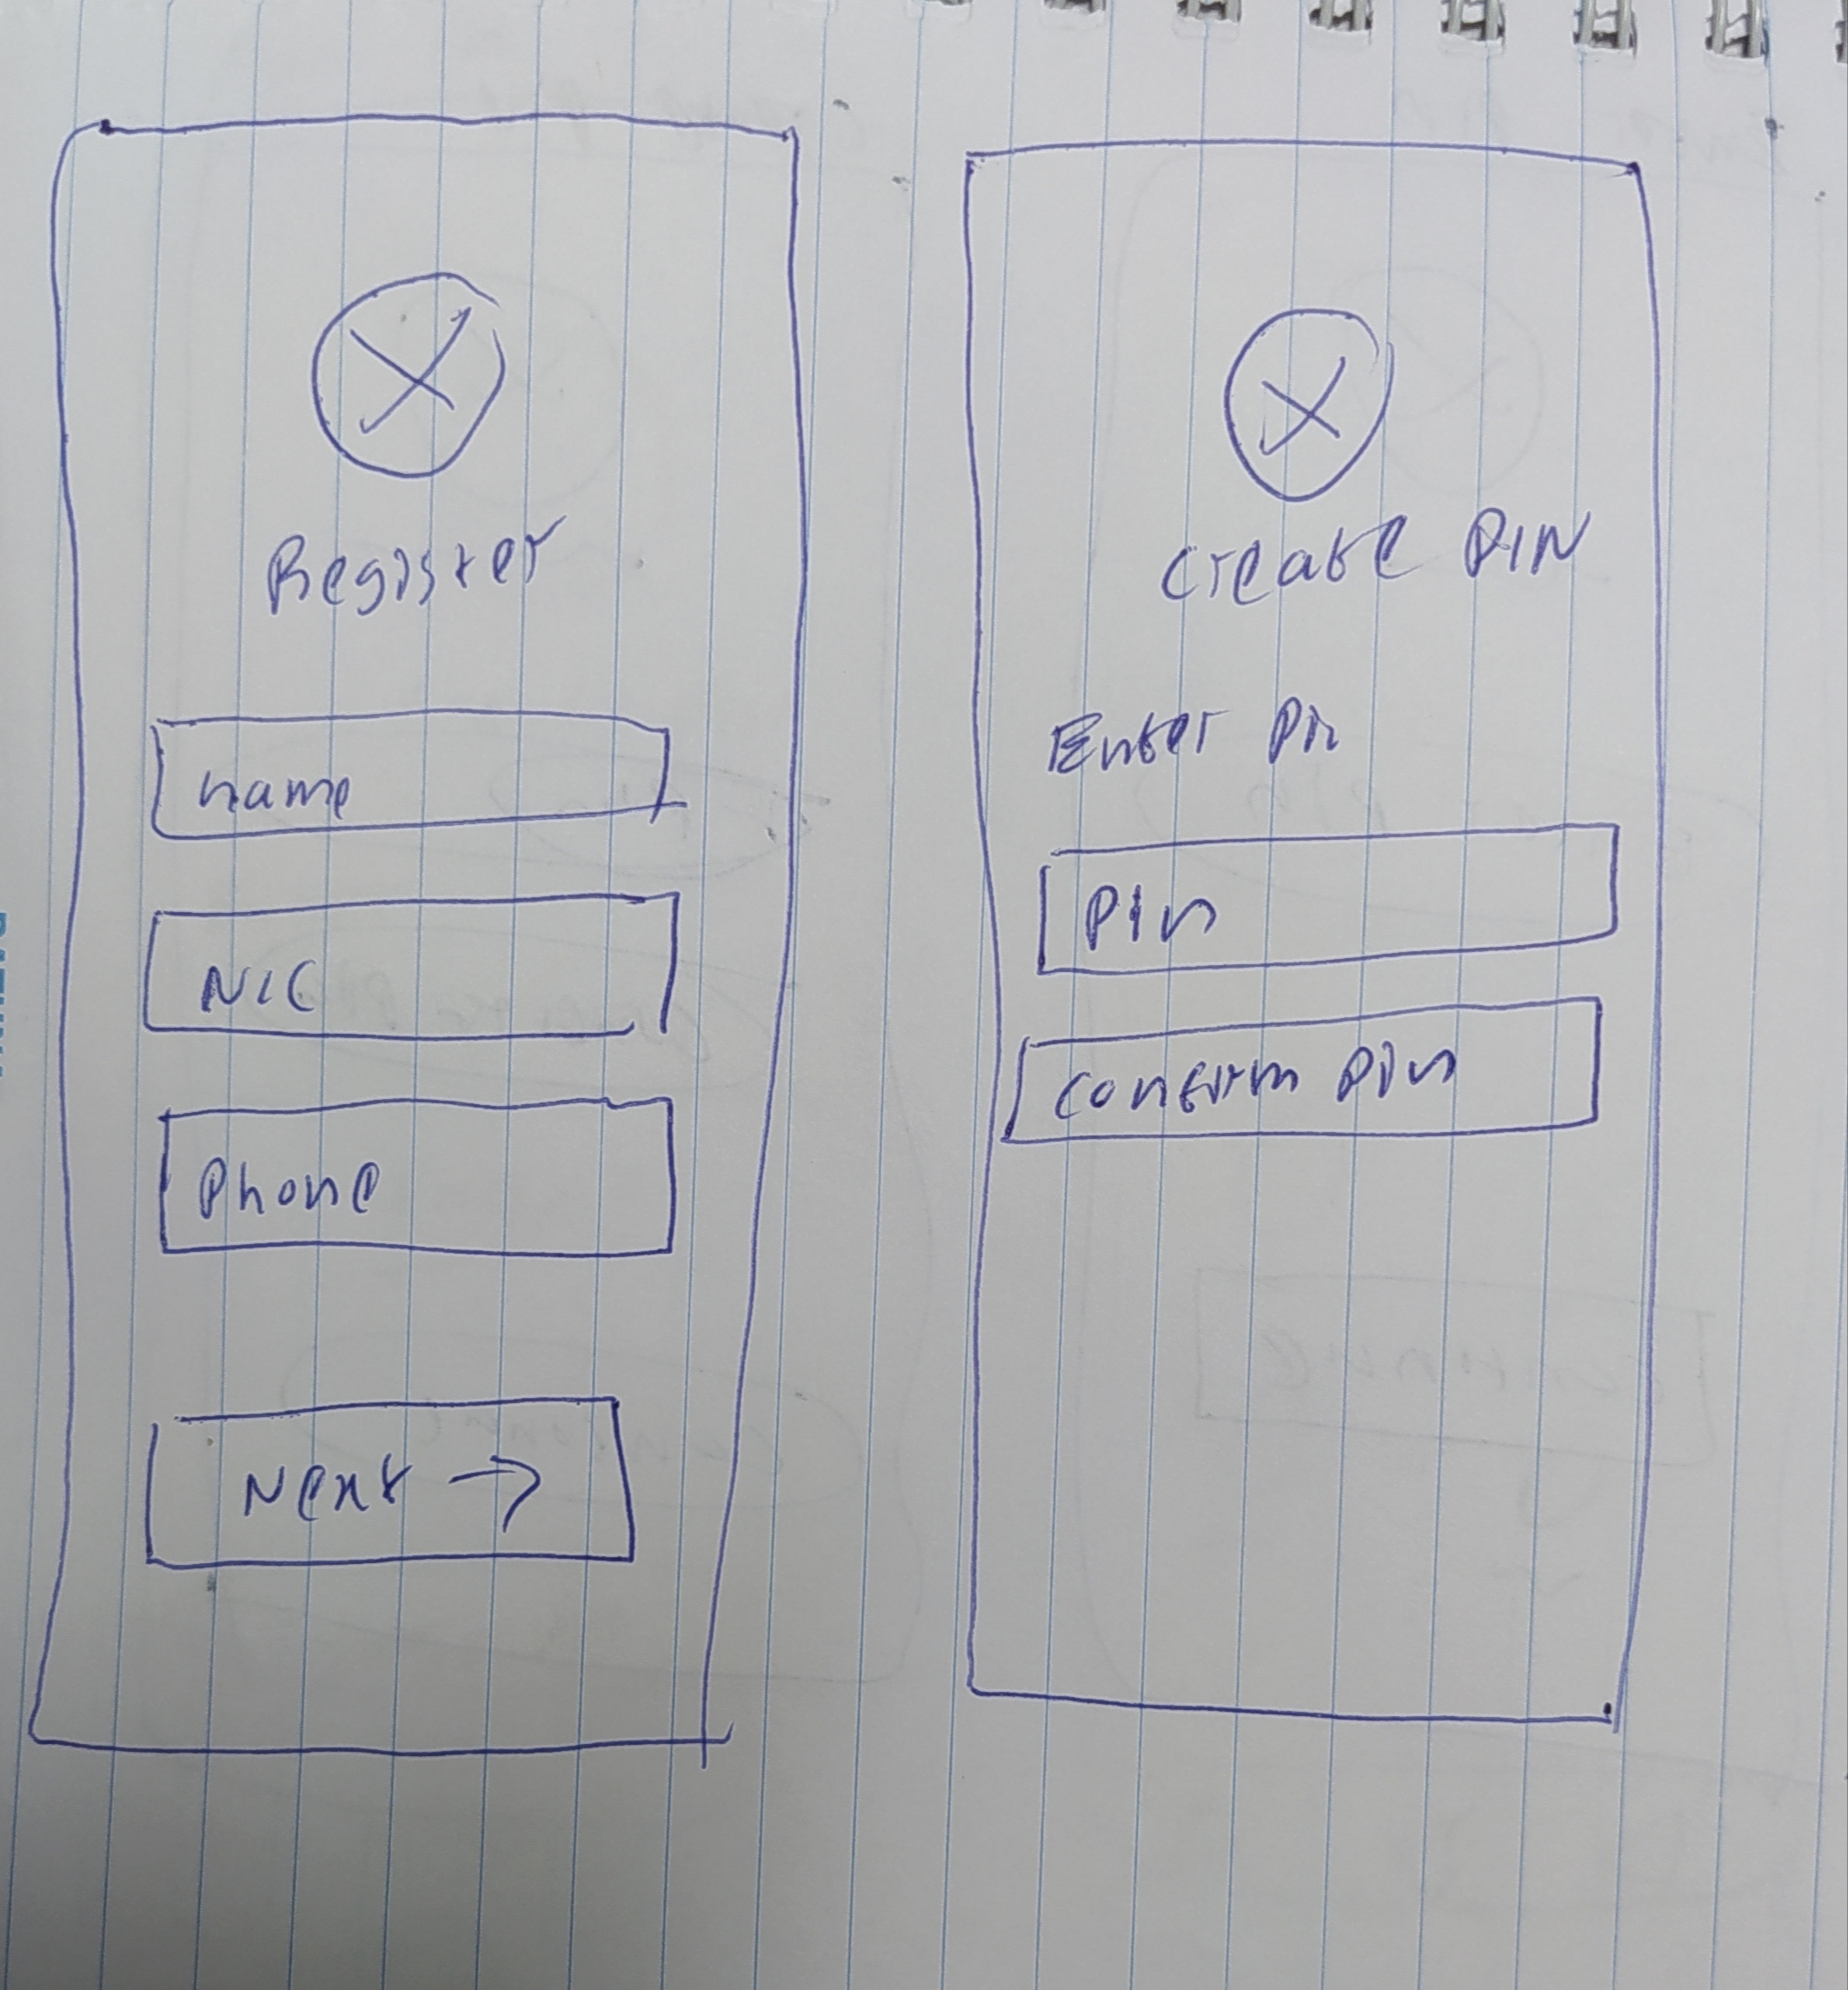 Register
name
NIC
Phone
Next →
Create PIN
Enter Pin
Pin
Confirm Pin